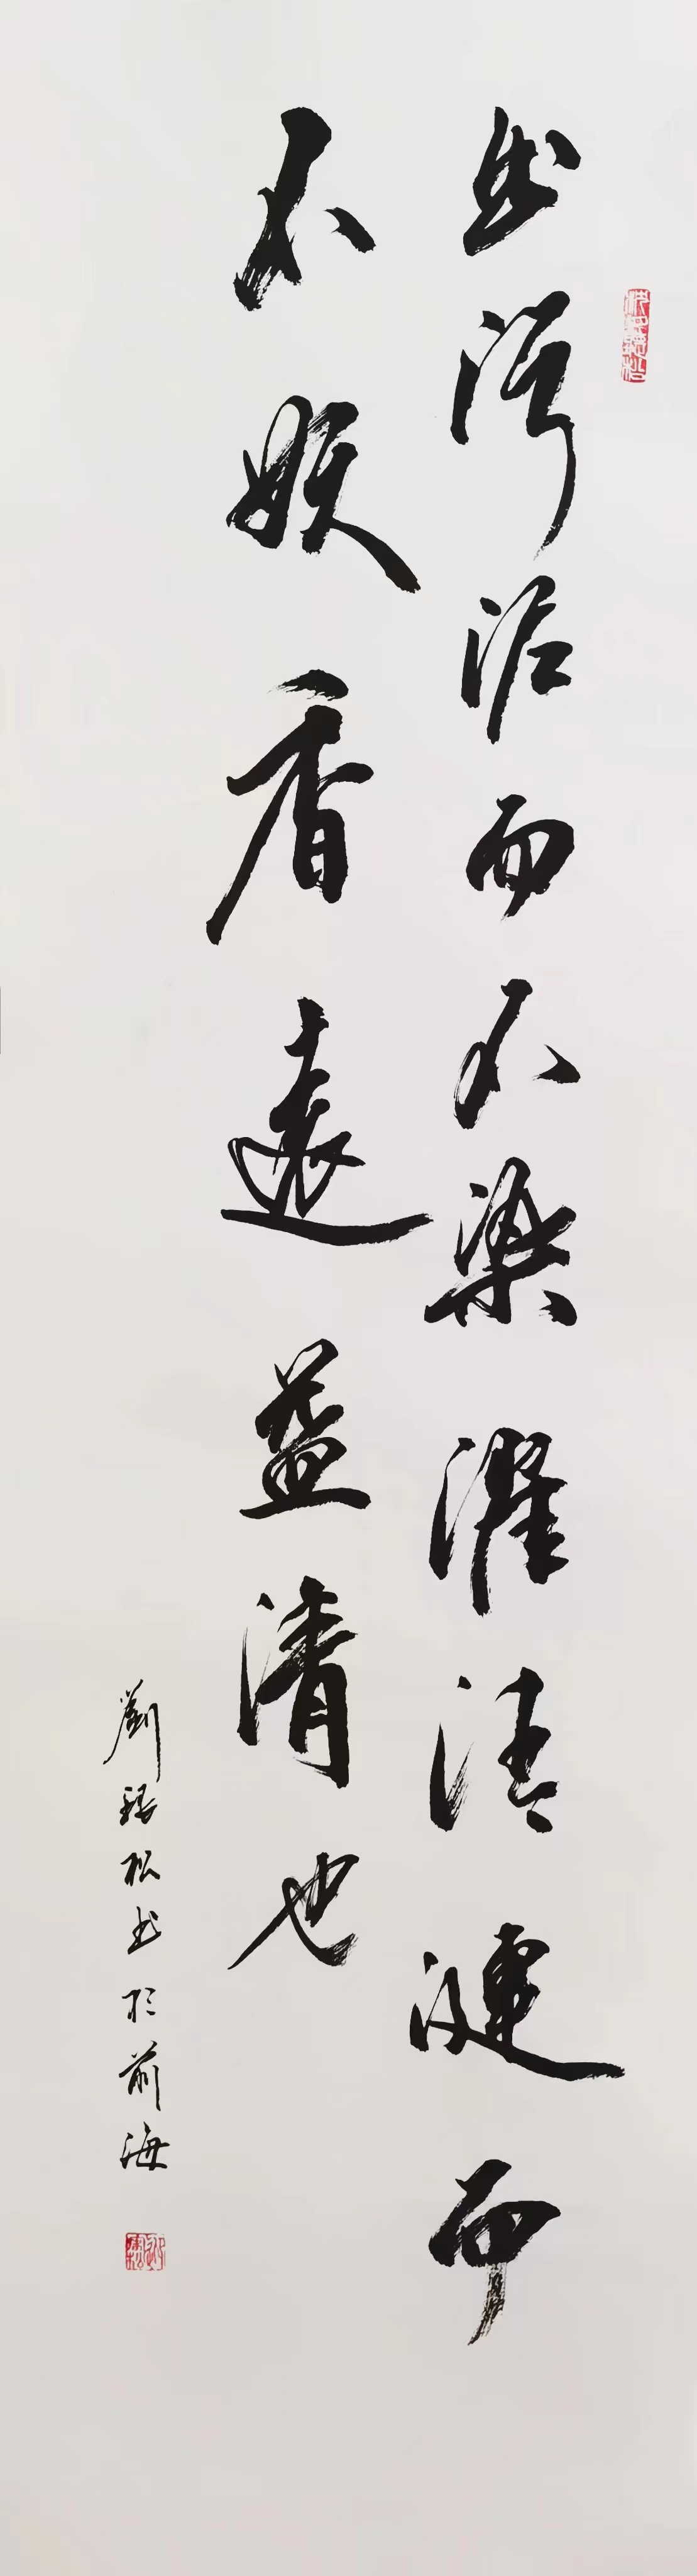 出污泥而不染濯清漣而
不妖香遠益清也
劉松書於前海